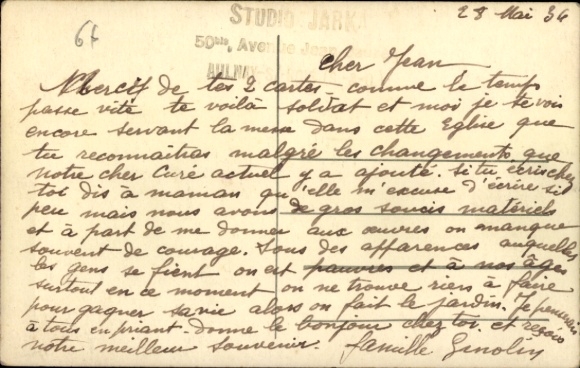 STUDIO JARK
28 Mai 36
64
50bis, Avenue Jean
AULNAY
cher Jean
Merci de tes 2 cartes - comme le temps
passe vite te voilà soldat et moi je te vois
encore servant la messe dans cette Eglise que
tu reconnaitras malgré les changements que
notre cher Curé actuel y a ajouté. si tu écris chez
toi dis à maman qu'elle m'excuse d'écrire si
peu mais nous avons de gros soucis matériels
et à part de me donner aux œuvres on manque
souvent de courage. Sous des apparences auquelles
les gens se fient on est pauvres et à nos âges
surtout en ce moment on ne trouve rien à faire
pour gagner sa vie alors on fait le jardin. Je penserais
à tous en priant. donne le bonjour chez toi. et reçois
notre meilleur souvenir. famille